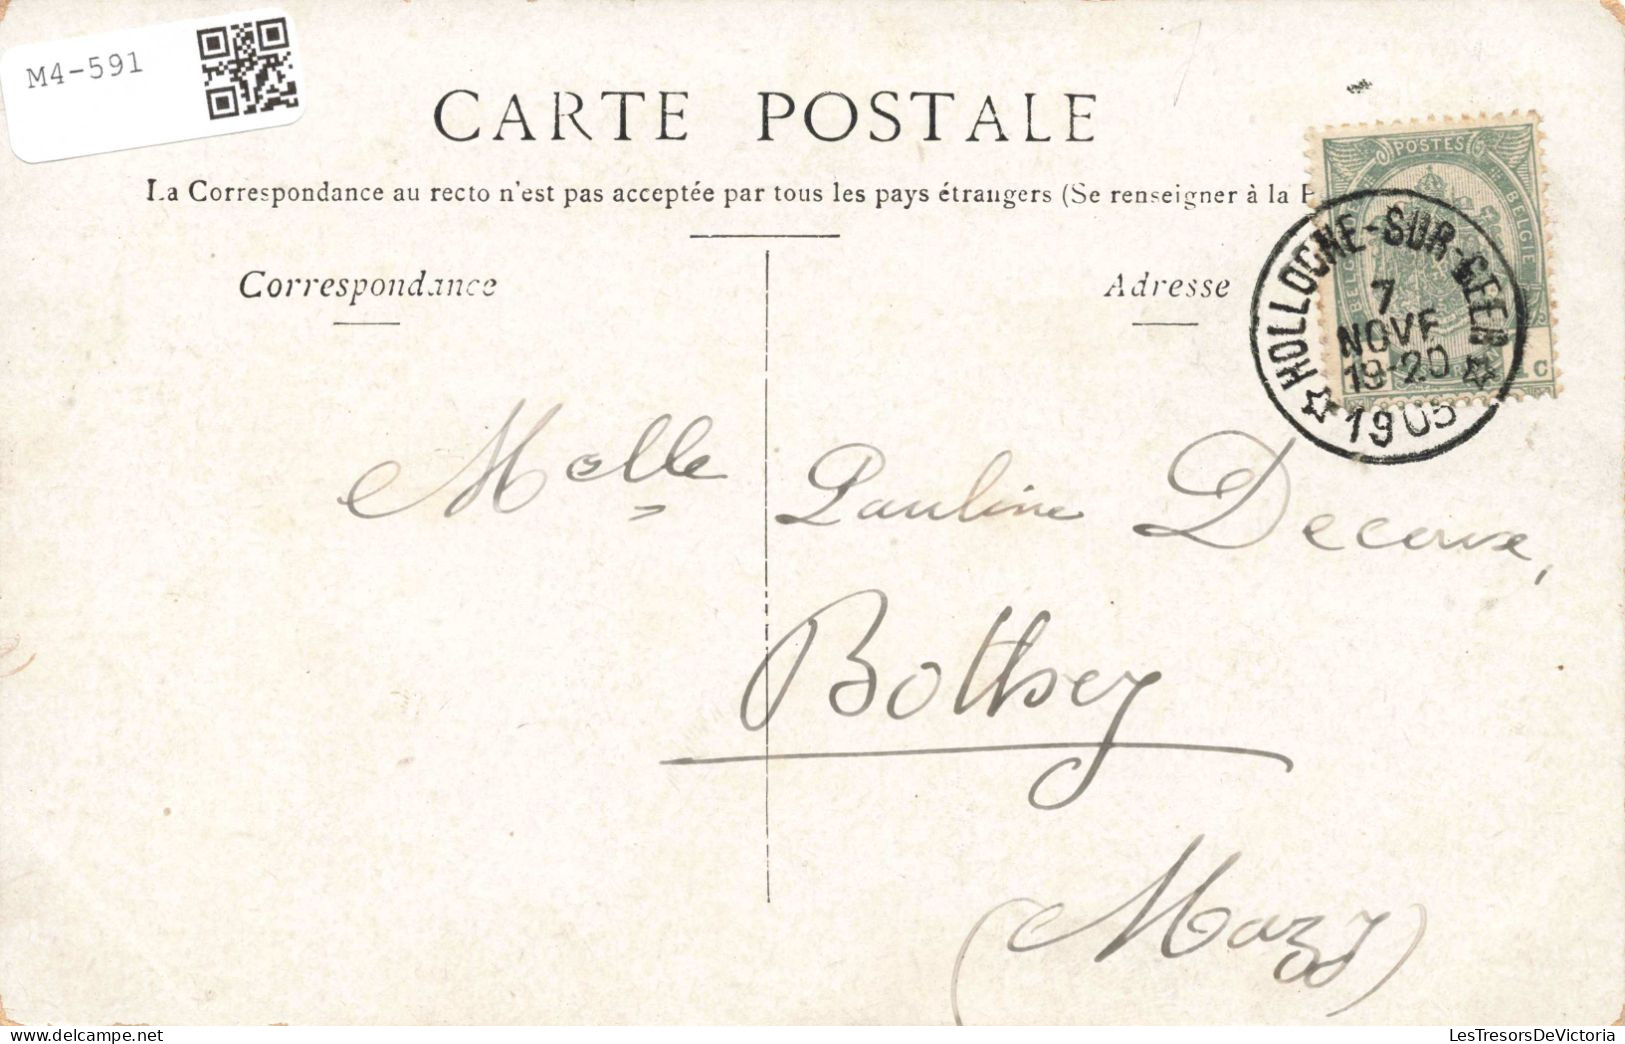 M4-591
CARTE POSTALE
La Correspondance au recto n'est pas acceptée par tous les pays étrangers (Se renseigner à la P
Correspondance
Adresse
POSTES
BELGIE
HOLLOGNE-SUR-GEER
7
NOVE
19-20
1905
Melle Pauline Decorse,
Bothey
(Mazy)
LesTresorsDeVictoria